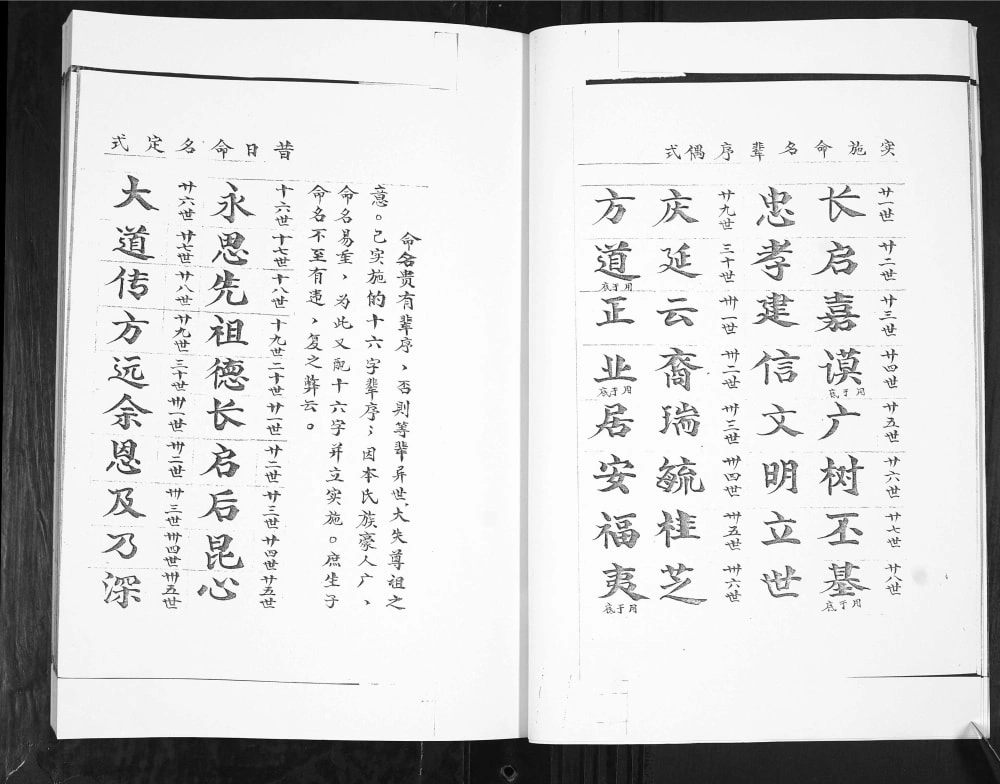 实施命名辈序偶式
廿一世 廿二世 廿三世 廿四世 廿五世 廿六世 廿七世 廿八世
长启嘉谟广树丕基
用于底 用于底
忠孝建信文明立世
廿九世 三十世 卅一世 卅二世 卅三世 卅四世 卅五世 卅六世
庆延云裔瑞毓桂芝
方道正业居安福夷
用于底 用于底 用于底
昔日命名定式
命名贵有辈序，否则等辈异世、大失尊祖之
意。已实施的十六字辈序；因本氏族豪人广、
命名易，为此又配十六字并立实施。庶生子
命名不至有违，复之云。
十六世 十七世 十八世 十九世 二十世 廿一世 廿二世 廿三世 廿四世 廿五世
永思先祖德长启后昆心
廿六世 廿七世 廿八世 廿九世 三十世 卅一世 卅二世 卅三世 卅四世 卅五世
大道传方远余恩及乃深